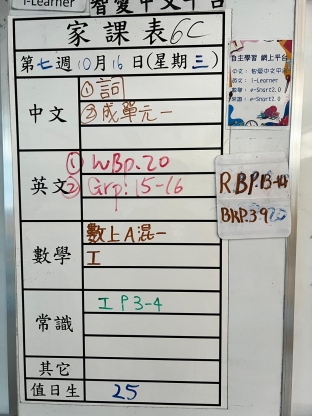 i-Learner
智愛中文平台
家課表 6C
第七週10月16日(星期三)
中文
①詞
②成單元一
英文
①WBp.20
②Grp:15-16
數學
數上A混一
工
常識
工P3-4
其它
值日生
25
自主學習 網上平台
中文：智愛中文平台
英文：i-Learner
數學：e-Smart2.0
常識：e-Smart2.0